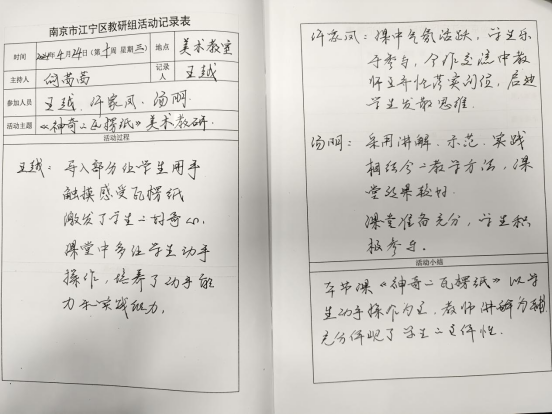 南京市江宁区教研组活动记录表
时间 2024年4月24日(第十周 星期三) 地点 美术教室
主持人 记录人 王越
参加人员 王越、许家凤、汤明
活动主题 《神奇的瓦楞纸》美术教研.
活动过程
王越: 导入部分让学生用手
触摸感受瓦楞纸
激发了学生的好奇心.
课堂中多让学生动手
操作,培养了动手能
力和实践能力.
许家凤:课中气氛活跃,学生乐
于参与,合作交流中教
师主导性落实到位,启迪
学生发散思维.
汤明: 采用讲解、示范、实践
相结合的教学方法,课
堂效果较好.
课堂准备充分,学生积
极参与.
活动小结
本节课《神奇的瓦楞纸》以学
生动手操作为主,教师讲解为辅,
充分体现了学生的主体性.